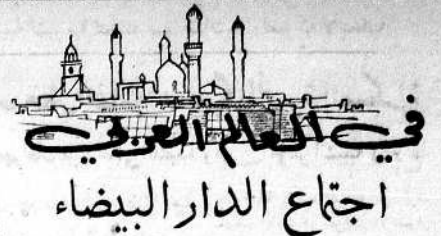 في العالم العربي
اجتماع الدار البيضاء